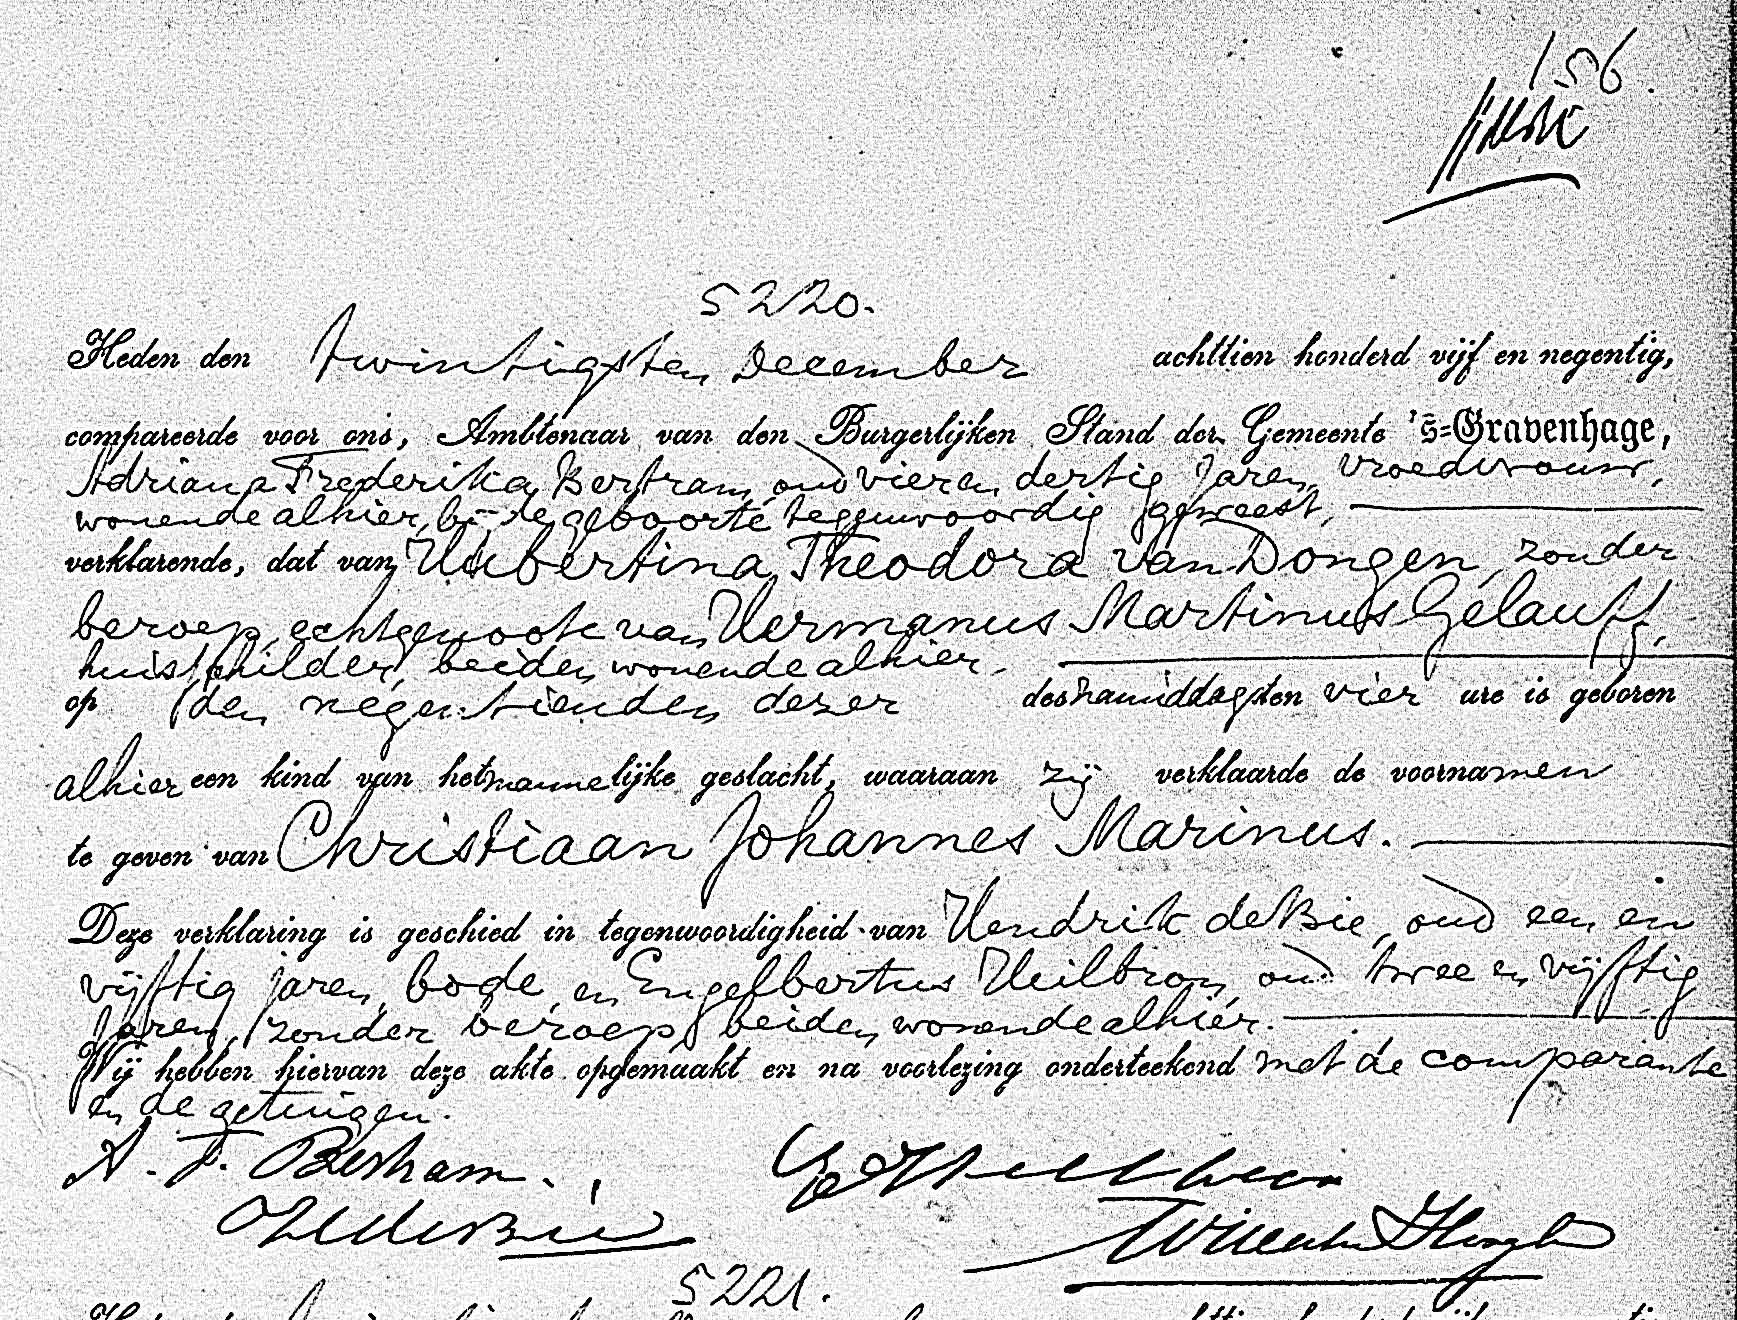 156.
5220.
Heden den twintigsten December achttien honderd vijf en negentig,
compareerde voor ons, Ambtenaar van den Burgerlijken Stand der Gemeente 's=Gravenhage,
Adriana Frederika Bertram, oud vier en dertig jaren, vroedvrouw,
wonende alhier, bij de geboorte tegenwoordig geweest,
verklarende, dat van Hubertina Theodora van Dongen, zonder
beroep, echtgenoote van Hermanus Martinus Gelauff,
huisschilder, beiden wonende alhier.
op den negentienden dezer des namiddags ten vier ure is geboren
alhier een kind van het mannelijke geslacht, waaraan zij verklaarde de voornamen
te geven van Christiaan Johannes Marinus.
Deze verklaring is geschied in tegenwoordigheid van Hendrik de Bie, oud een en
vijftig jaren, bode, en Engelbertus Heilbron, oud twee en vijftig
jaren, zonder beroep, beiden wonende alhier.
Wij hebben hiervan deze akte opgemaakt en na voorlezing onderteekend met de comparante
en de getuigen.
A. F. Bertram.
H de Bie
5221.